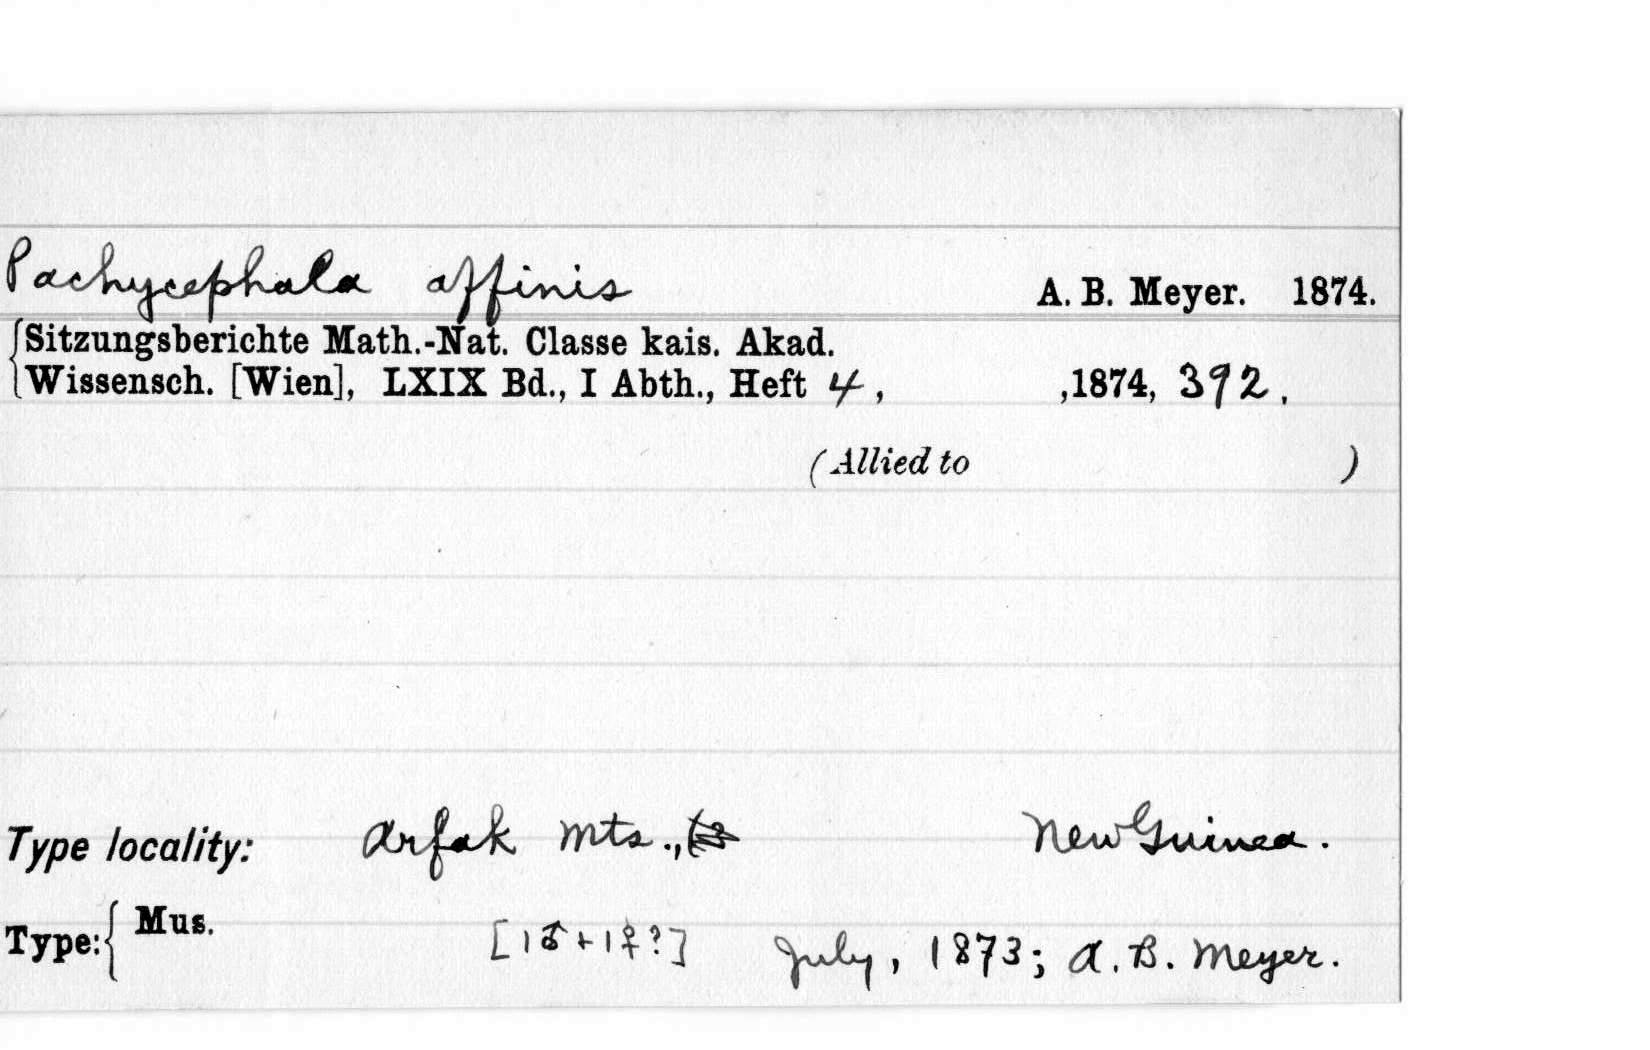 Pachycephala affinis A. B. Meyer. 1874.
Sitzungsberichte Math.-Nat. Classe kais. Akad.
Wissensch. [Wien], LXIX Bd., I Abth., Heft 4, ,1874, 392.
(Allied to )
Type locality: Arfak Mts., New Guinea.
Type: Mus. [1♂+1♀?] July, 1873; A. B. Meyer.